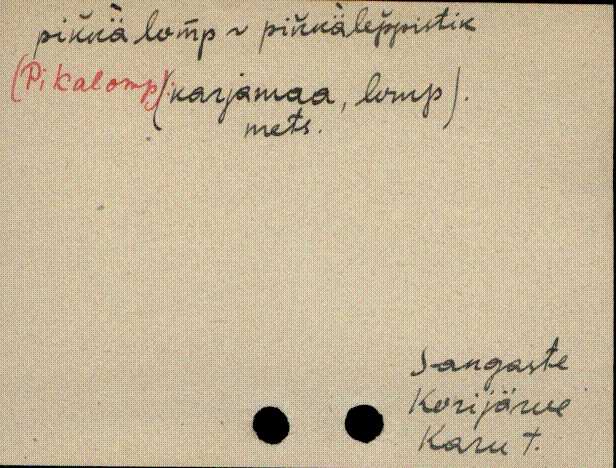 pikkä lomp ~ pikkäleppistik
(Pikalomp) (karjamaa, lomp).
mets.
Sangaste
Korijärve
Karu t.